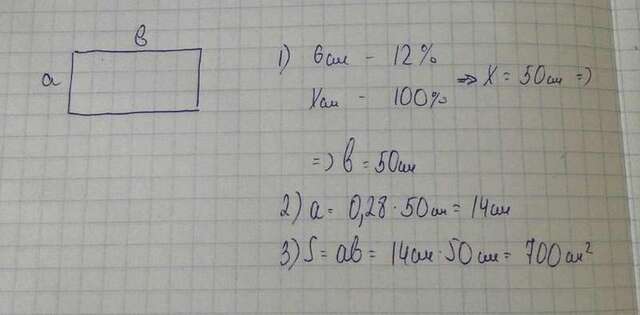 в
a
1) 6см - 12%
Xсм - 100%
=> X = 50см =>
=> b = 50см
2) a = 0,28 · 50см = 14см
3) S = ab = 14см · 50см = 700см²